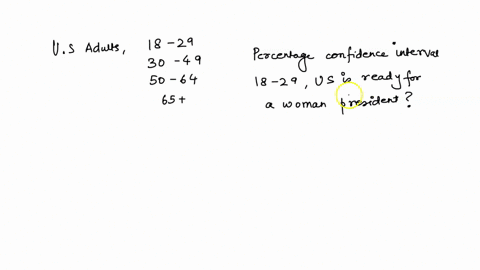 U.S Adults, 18-29
30-49
50-64
65+
Percentage confidence interval
18-29, US is ready for
a woman president?